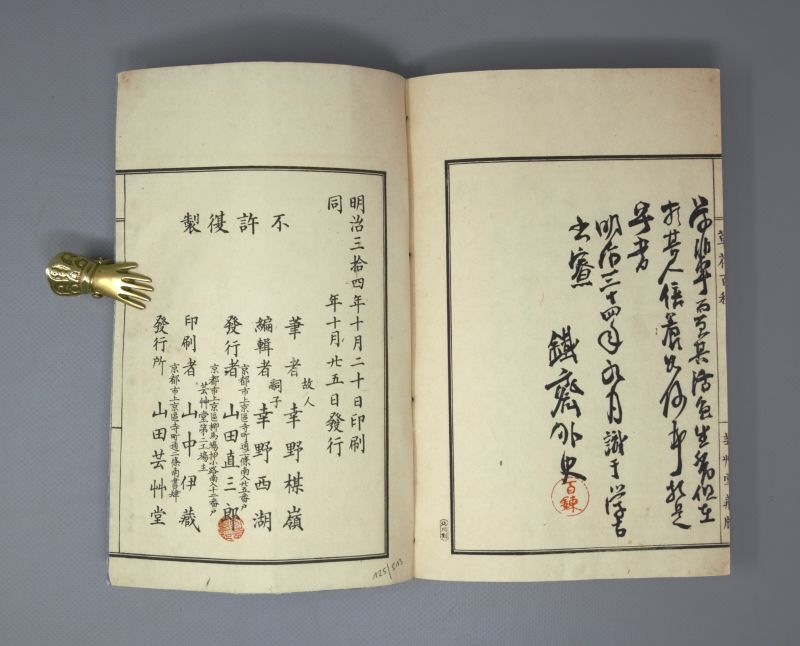 草花百種
芸艸堂藏版
乎書
明治三十四年九月識于学古
書寮
鐵齋外史
百錬
明治三拾四年十月二十日印刷
同 年十月廿五日發行
不許復製
故人
筆者 幸野楳嶺
嗣子
編輯者 幸野西湖
京都市上京區寺町通二條南入廿五番戸
發行者 山田直三郎
京都市上京區柳馬場押小路南入十二番戸
芸艸堂第二工場主
印刷者 山中伊藏
京都市上京區寺町通二條南書肆
發行所 山田芸艸堂
125/513